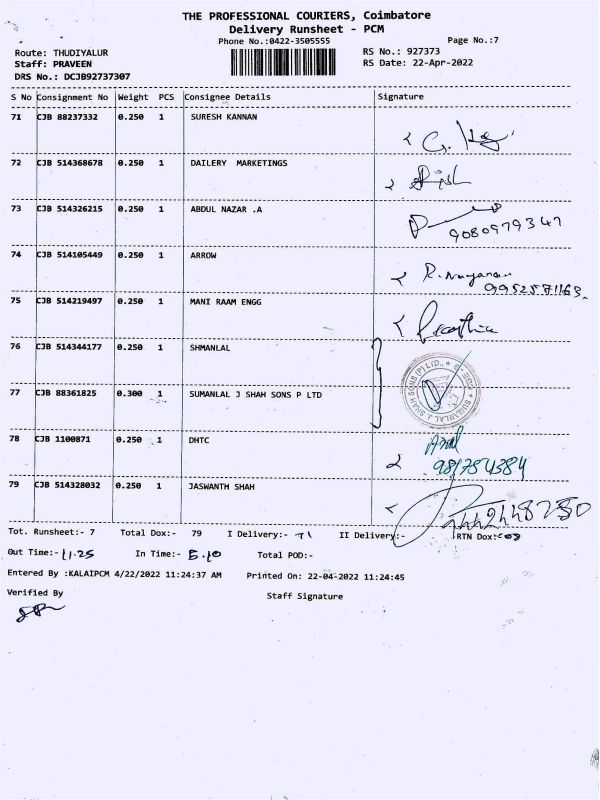 THE PROFESSIONAL COURIERS, Coimbatore
Delivery Runsheet - PCM
Phone No.:0422-3505555
Page No.:7
Route: THUDIYALUR
RS No.: 927373
Staff: PRAVEEN
RS Date: 22-Apr-2022
DRS No.: DCJB92737307
S No Consignment No Weight PCS Consignee Details Signature
71 CJB 88237332 0.250 1 SURESH KANNAN
72 CJB 514368678 0.250 1 DAILERY MARKETINGS
73 CJB 514326215 0.250 1 ABDUL NAZAR .A
9080979347
74 CJB 514105449 0.250 1 ARROW
9952571163
75 CJB 514219497 0.250 1 MANI RAAM ENGG
76 CJB 514344177 0.250 1 SHMANLAL
77 CJB 88361825 0.300 1 SUMANLAL J SHAH SONS P LTD
SUMANLAL J. SHAH SONS (P) LTD.,
78 CJB 1100871 0.250 1 DHTC
79 CJB 514328032 0.250 1 JASWANTH SHAH
Tot. Runsheet:- 7 Total Dox:- 79 I Delivery:- 71 II Delivery:- RTN Dox:- 08
Out Time:- 11.25 In Time:- 5.10 Total POD:-
Entered By :KALAIPCM 4/22/2022 11:24:37 AM Printed On: 22-04-2022 11:24:45
Verified By
Staff Signature